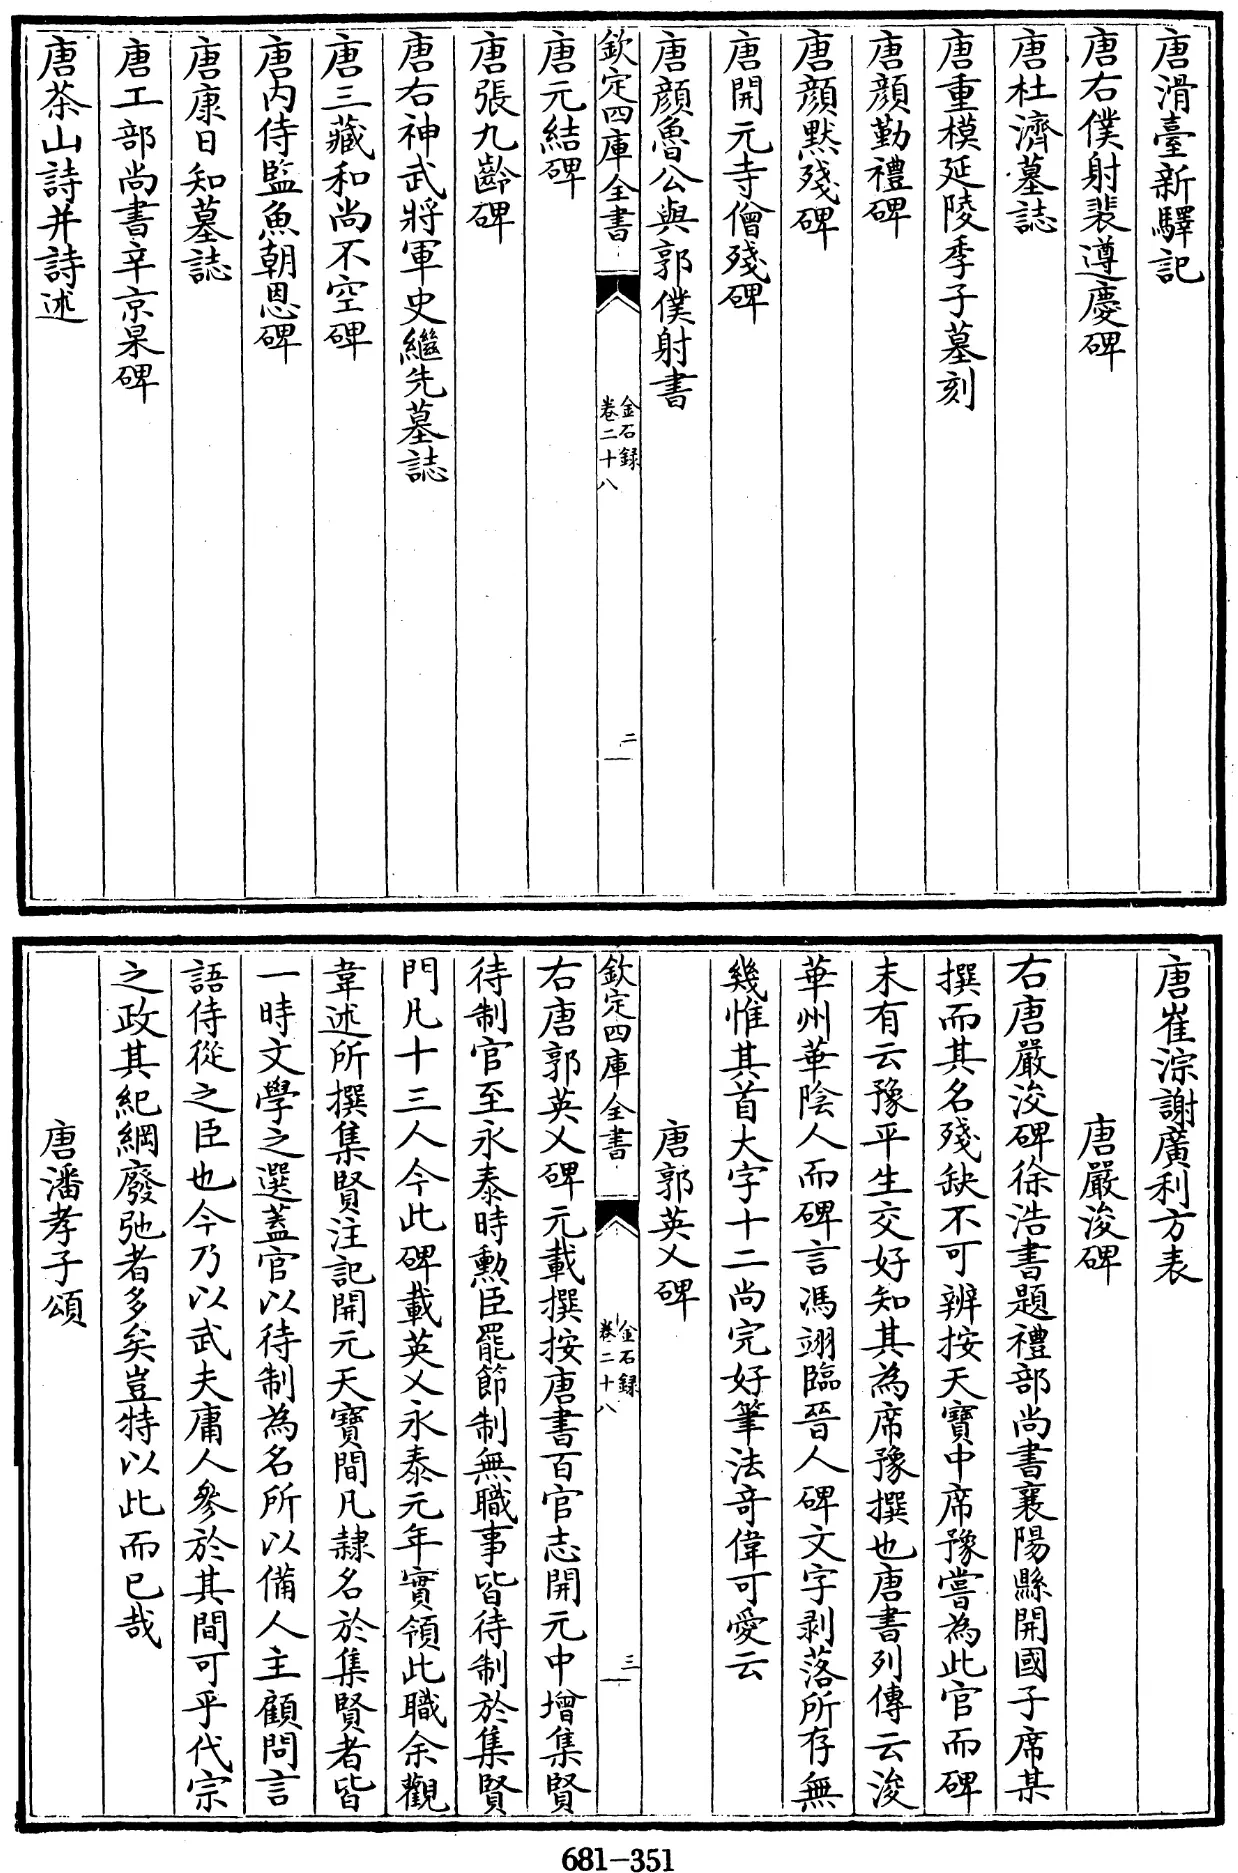 唐滑臺新驛記
唐右僕射裴遵慶碑
唐杜濟墓誌
唐重模延陵季子墓刻
唐顔勤禮碑
唐顔默殘碑
唐開元寺僧殘碑
唐顔魯公與郭僕射書
欽定四庫全書
金石録
卷二十八
二
唐元結碑
唐張九齡碑
唐右神武將軍史繼先墓誌
唐三藏和尚不空碑
唐内侍監魚朝恩碑
唐康日知墓誌
唐工部尚書辛京杲碑
唐茶山詩并詩述
唐崔淙謝廣利方表
唐嚴浚碑
右唐嚴浚碑徐浩書題禮部尚書襄陽縣開國子席某
撰而其名殘缺不可辨按天寶中席豫嘗為此官而碑
末有云豫平生交好知其為席豫撰也唐書列傳云浚
華州華陰人而碑言馮翊臨晉人碑文字剥落所存無
幾惟其首大字十二尚完好筆法竒偉可愛云
唐郭英乂碑
欽定四庫全書
金石録
卷二十八
三
右唐郭英乂碑元載撰按唐書百官志開元中增集賢
待制官至永泰時勲臣罷節制無職事皆待制於集賢
門凡十三人今此碑載英乂永泰元年實領此職余觀
韋述所撰集賢注記開元天寶間凡隷名於集賢者皆
一時文學之選蓋官以待制為名所以備人主顧問言
語侍從之臣也今乃以武夫庸人參於其間可乎代宗
之政其紀綱廢弛者多矣豈特以此而已哉
唐潘孝子頌
681-351